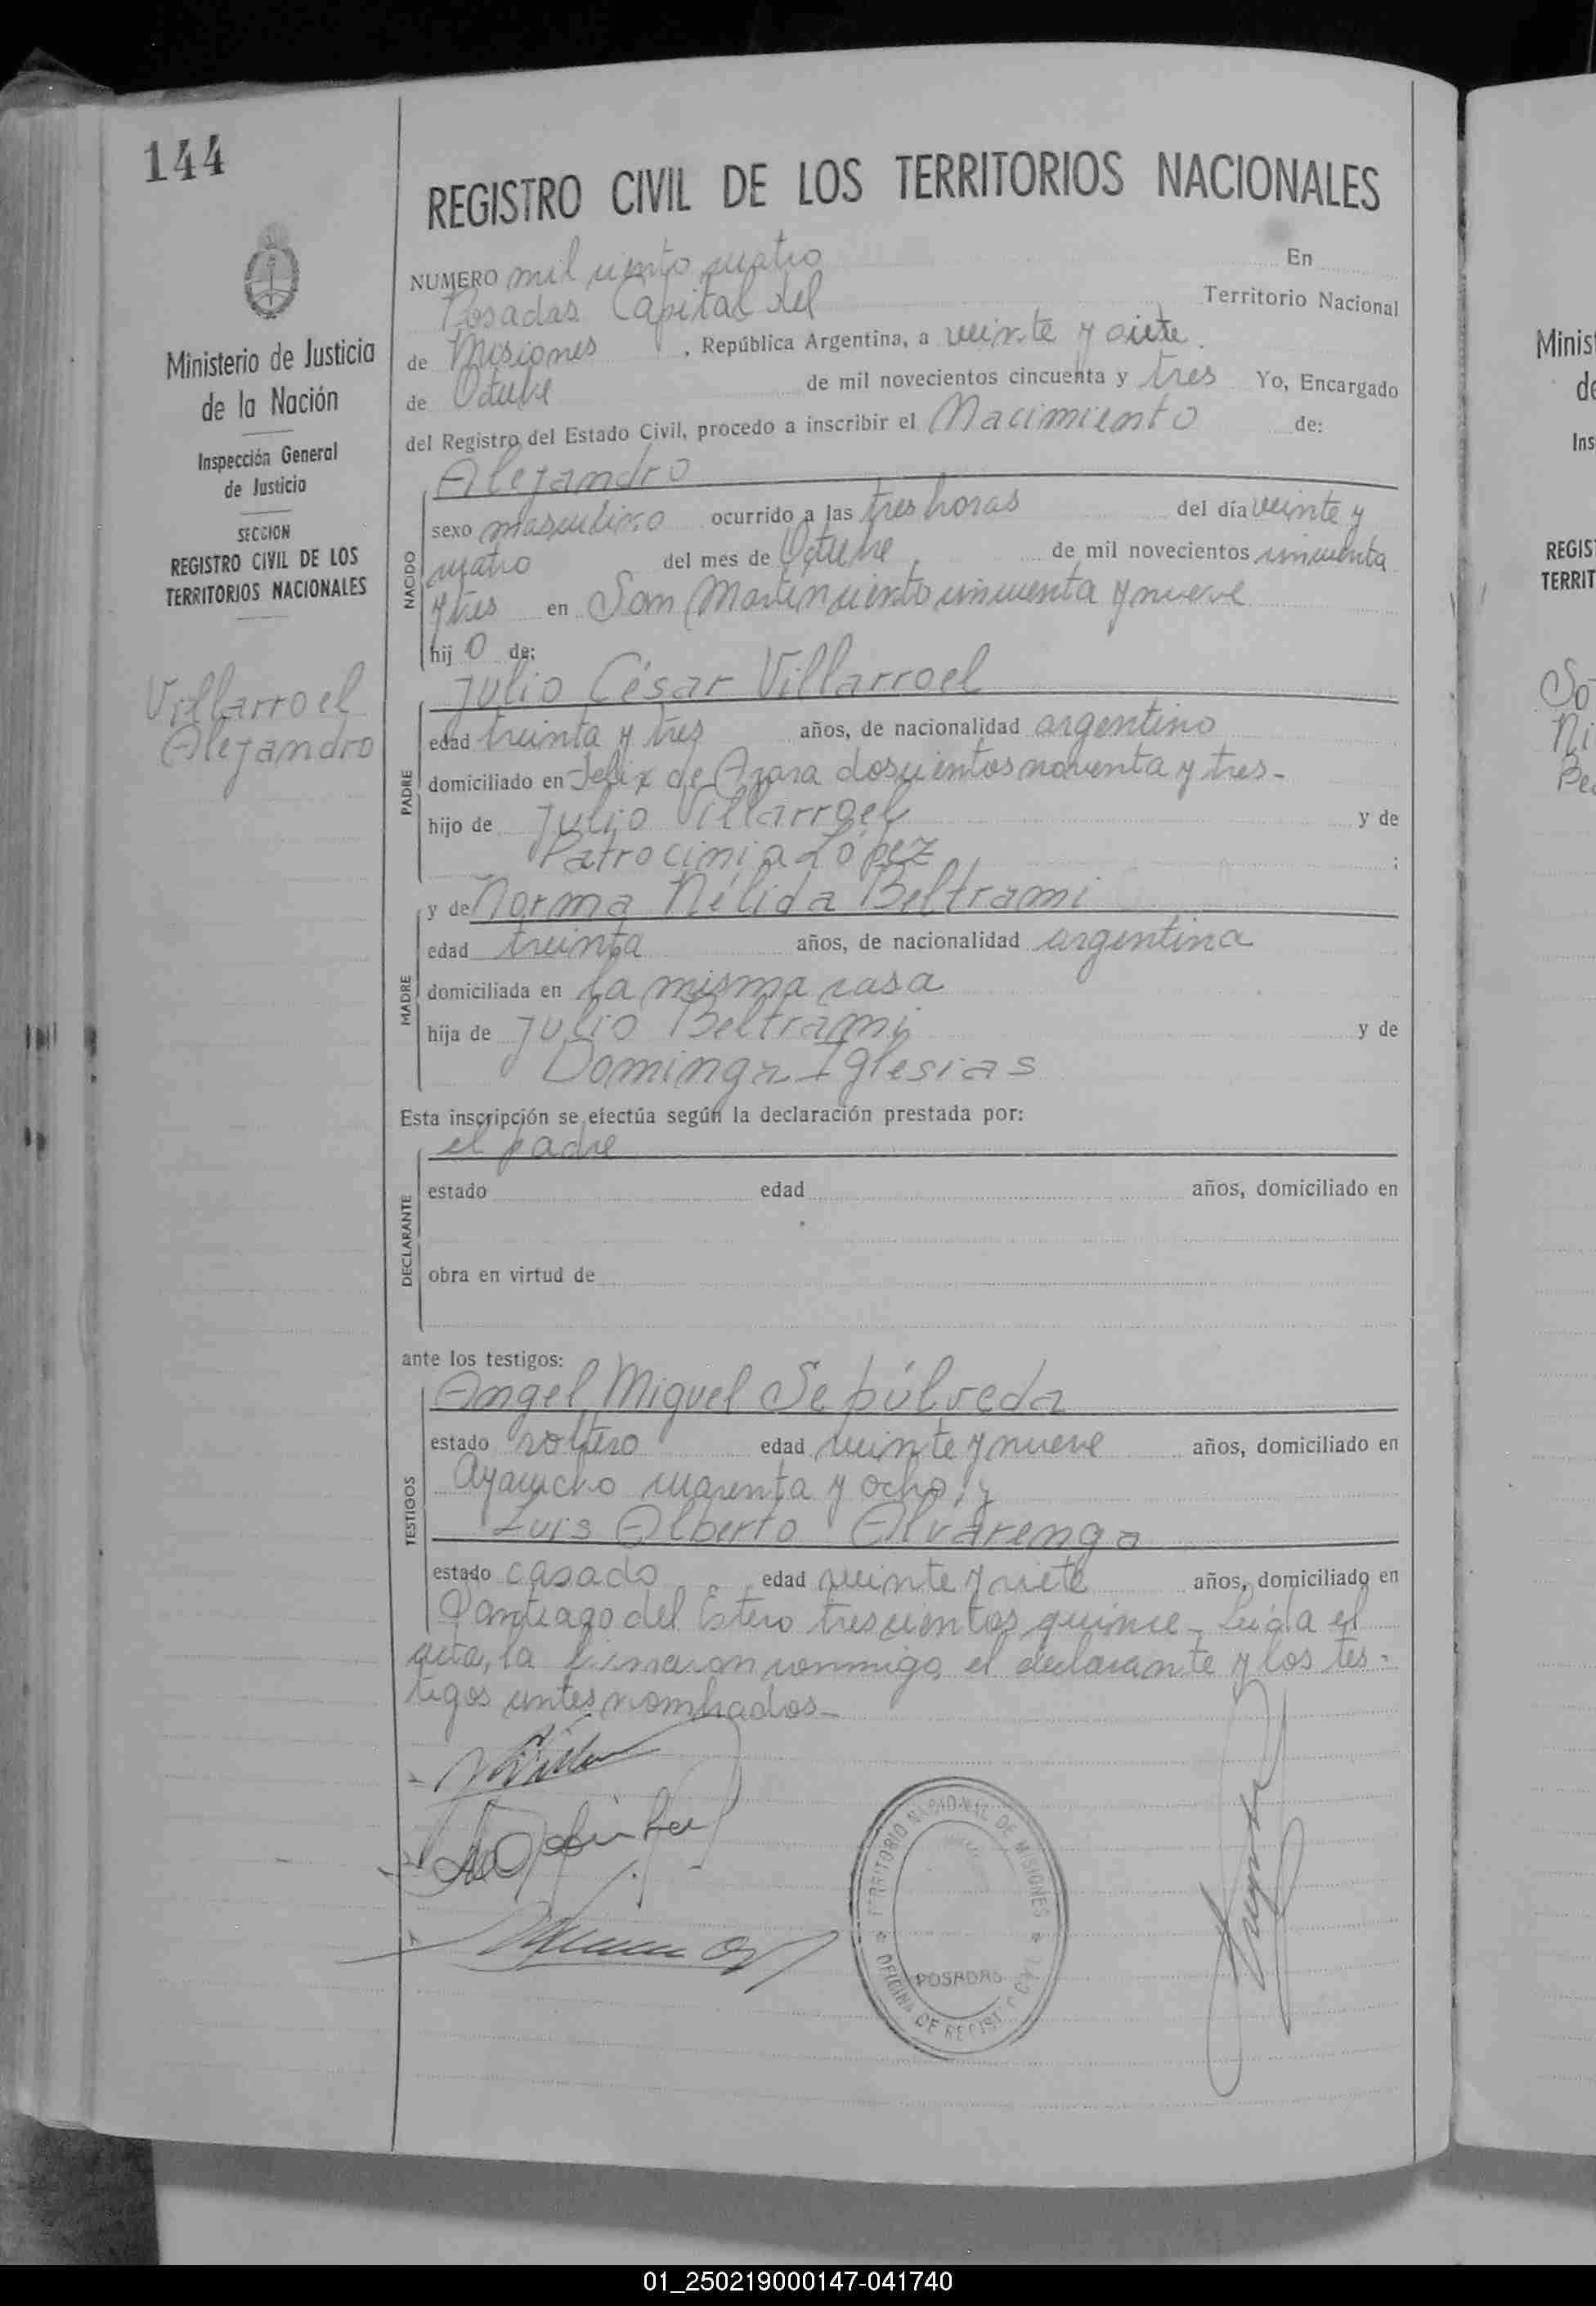 144
REGISTRO CIVIL DE LOS TERRITORIOS NACIONALES
Ministerio de Justicia
de la Nación
Inspección General
de Justicia
SECCION
REGISTRO CIVIL DE LOS
TERRITORIOS NACIONALES
Villarroel
Alejandro
NUMERO mil ciento cuatro En
Posadas Capital del Territorio Nacional
de Misiones, República Argentina, a veinte y siete
de Octubre de mil novecientos cincuenta y tres Yo, Encargado
del Registro del Estado Civil, procedo a inscribir el Nacimiento de:
Alejandro
NACIDO
sexo masculino ocurrido a las tres horas del día veinte y
cuatro del mes de Octubre de mil novecientos cincuenta
y tres en San Martin ciento cincuenta y nueve
hijo de:
Julio César Villarroel
PADRE
edad treinta y tres años, de nacionalidad argentino
domiciliado en Felix de Azara doscientos noventa y tres-
hijo de Julio Villarroel y de
Patrocinia López ;
MADRE
y de Norma Nélida Beltrami
edad treinta años, de nacionalidad argentina
domiciliada en la misma casa
hija de Julio Beltrami y de
Dominga Iglesias
Esta inscripción se efectúa según la declaración prestada por:
el padre
DECLARANTE
estado edad años, domiciliado en
obra en virtud de
ante los testigos:
Angel Miguel Sepúlveda
TESTIGOS
estado soltero edad veinte y nueve años, domiciliado en
Ayacucho cuarenta y ocho, y
Luis Alberto Alvarenga
estado casado edad veinte y siete años, domiciliado en
Santiago del Estero trescientos quince - Leida el
acta, la firmaron conmigo el declarante y los tes-
tigos antes nombrados-
TERRITORIO NACIONAL DE MISIONES
POSADAS
OFICINA DE REGIST. CIVIL
Minis
de
Ins
REGIS
TERRIT
So
Ni
Be
01_250219000147-041740